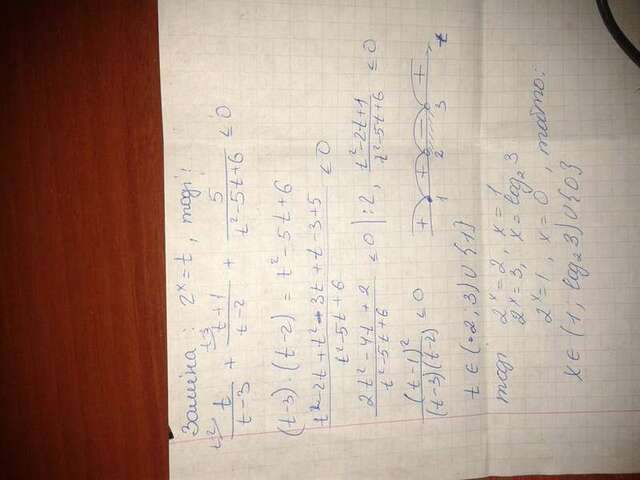 Заміна: 2ˣ = t, тоді:
t-2 t/(t-3) + t-3 (t+1)/(t-2) + 5/(t²-5t+6) ≤ 0
(t-3)·(t-2) = t²-5t+6
(t²-2t+t²-3t+t-3+5)/(t²-5t+6) ≤ 0
(2t²-4t+2)/(t²-5t+6) ≤ 0 |:2, (t²-2t+1)/(t²-5t+6) ≤ 0
(t-1)²/((t-3)(t-2)) ≤ 0 + + - + 1 2 3 t
t ∈ (2;3) ∪ {1}
тоді 2ˣ = 2, x = 1
2ˣ = 3, x = log₂3
2ˣ = 1, x = 0, тобто:
x ∈ (1, log₂3) ∪ {0}